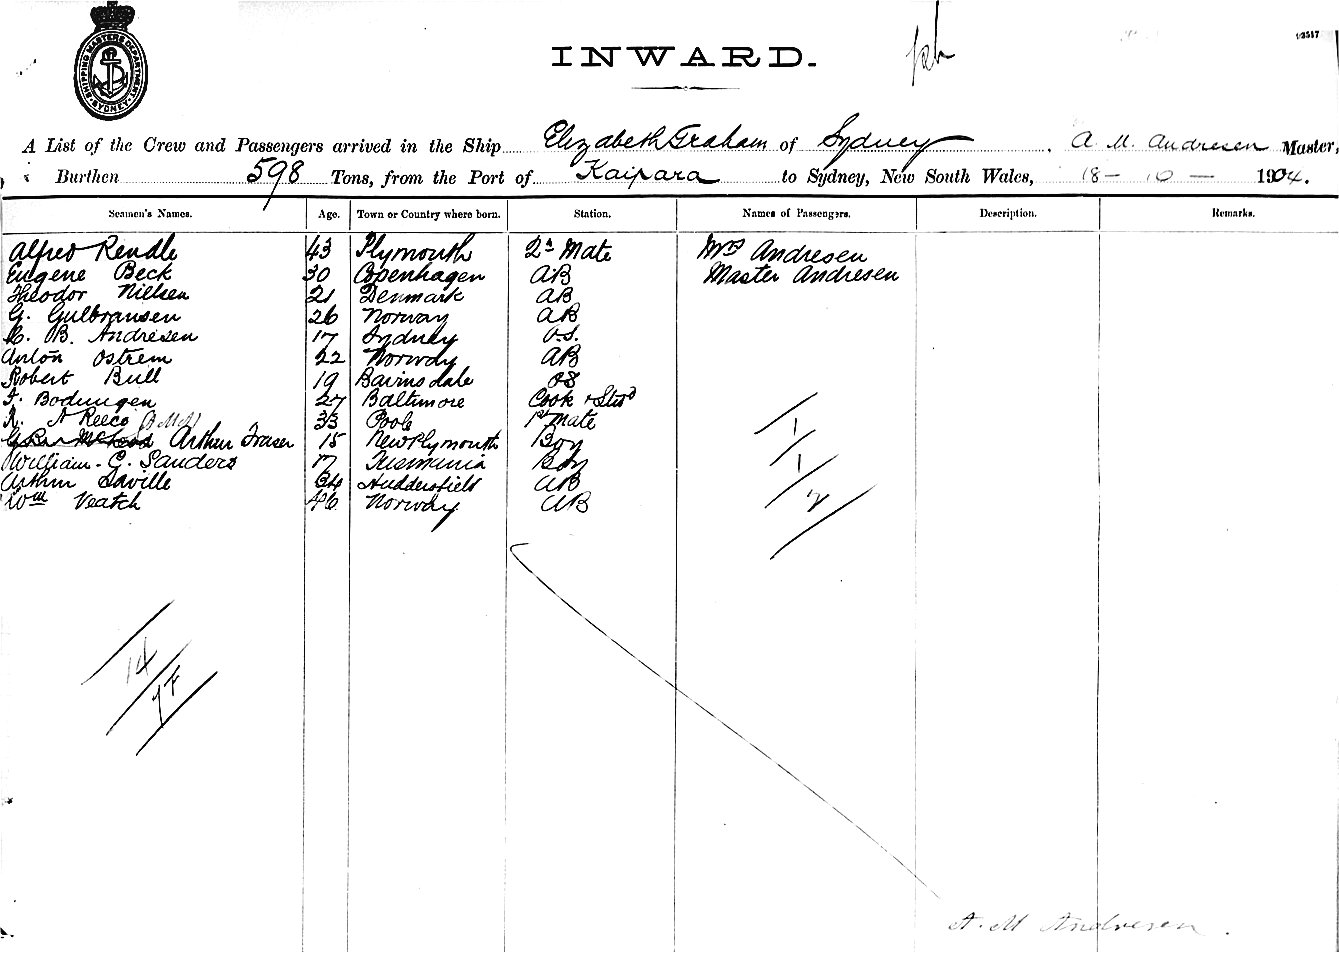 SHIPPING MASTERS DEPARTMENT
SYDNEY
INWARD.
A List of the Crew and Passengers arrived in the Ship Elizabeth Graham of Sydney, A. M. Andresen Master,
Burthen 598 Tons, from the Port of Kaipara to Sydney, New South Wales, 18-10-1904.
Seamen's Names. Age. Town or Country where born. Station. Names of Passengers. Description. Remarks.
Alfred Rendle 43 Plymouth 2d Mate Mrs Andresen
Eugene Beck 30 Copenhagen AB Master Andresen
Theodor Nielsen 21 Denmark AB
G. Gulbransen 26 Norway AB
C. B. Andresen 17 Sydney O.S.
Anton Ostrem 22 Norway AB
Robert Bull 19 Bairnsdale OS
F. Bodungen 27 Baltimore Cook & Stwd
R. A Reece 33 Poole 1st Mate
Arthur Fraser 15 New Plymouth Boy
William. G. Sanders 17 Tasmania Boy
Arthur Saville 34 Huddersfield AB
Wm Veatch 46 Norway AB
1
1
2
14
A. M Andresen.